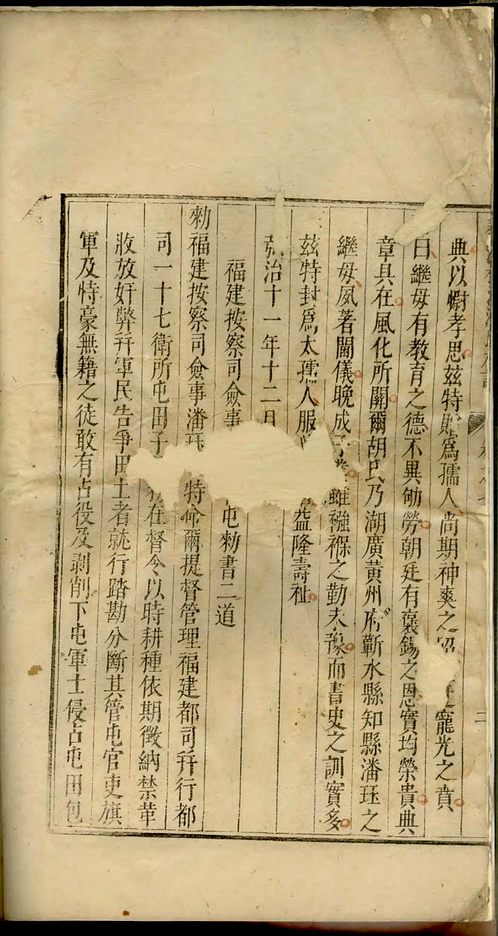 典以慰孝思茲特贈爲孺人尚期神爽之寵光之賁
曰繼母有教育之德不異劬勞朝廷有褒錫之恩實均榮貴典
章具在風化所關爾胡氏乃湖廣黃州府蘄水縣知縣潘珏之
繼母夙著閫儀晚成子雖襁褓之勤未豫而書史之訓實多
茲特封爲太孺人服益隆壽祉
弘治十一年十二月
福建按察司僉事屯勅書二道
勅福建按察司僉事潘珏特命爾提督管理福建都司幷行都
司一十七衛所屯田子在督令以時耕種依期徵納禁革
收放奸弊幷軍民告爭田土者就行踏勘分斷其管屯官吏旗
軍及恃豪無籍之徒敢有占役及剥削下屯軍士侵占屯田包